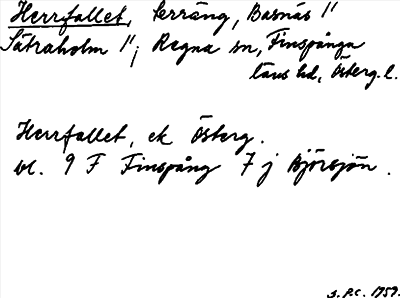 Herrfallet, terräng, Basnäs 1/1
Sätraholm 1/1; Regna sn, Finspånga
läns hd, Österg. l.
Herrfallet, ek Österg.
bl. 9 F Finspång 7 j Björsjön.
S.P.C. 1959.